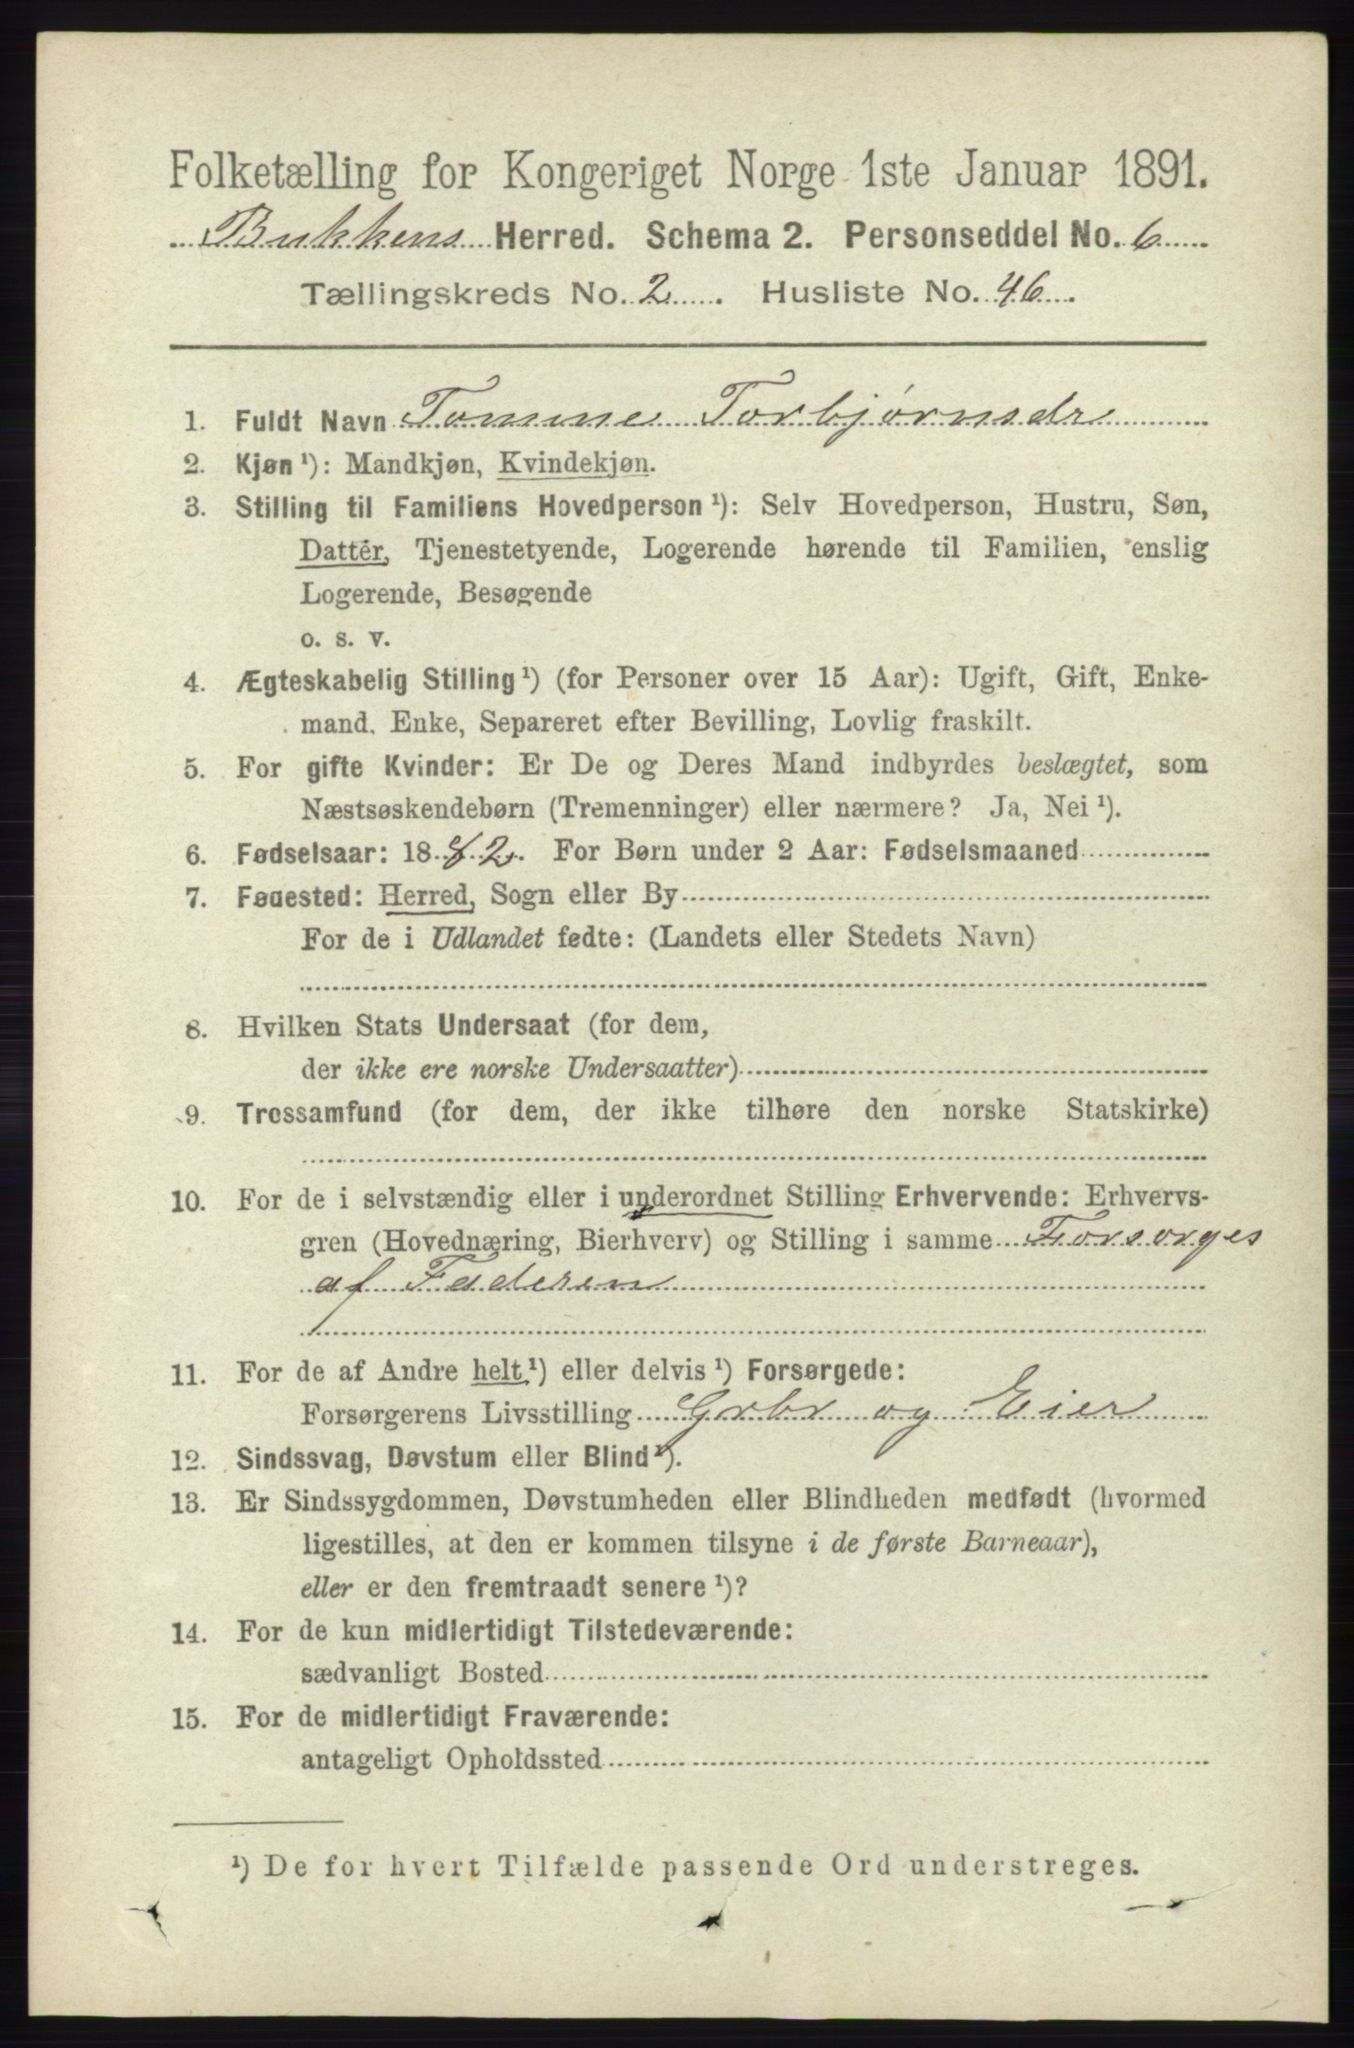 Folketælling for Kongeriget Norge 1ste Januar 1891.
Bukkens Herred. Schema 2. Personseddel No. 6
Tællingskreds No. 2. Husliste No. 46.
1. Fuldt Navn Tomine Torbjørnsdr
2. Kjøn ¹): Mandkjøn, Kvindekjøn.
3. Stilling til Familiens Hovedperson ¹): Selv Hovedperson, Hustru, Søn,
Datter, Tjenestetyende, Logerende hørende til Familien, enslig
Logerende, Besøgende
o. s. v.
4. Ægteskabelig Stilling ¹) (for Personer over 15 Aar): Ugift, Gift, Enke-
mand, Enke, Separeret efter Bevilling, Lovlig fraskilt.
5. For gifte Kvinder: Er De og Deres Mand indbyrdes beslægtet, som
Næstsøskendebørn (Tremenninger) eller nærmere? Ja, Nei ¹).
6. Fødselsaar: 1882. For Børn under 2 Aar: Fødselsmaaned
7. Fødested: Herred, Sogn eller By
For de i Udlandet fødte: (Landets eller Stedets Navn)
8. Hvilken Stats Undersaat (for dem,
der ikke ere norske Undersaatter)
9. Trossamfund (for dem, der ikke tilhøre den norske Statskirke)
10. For de i selvstændig eller i underordnet Stilling Erhvervende: Erhvervs-
gren (Hovednæring, Bierhverv) og Stilling i samme Forsørges
af Faderen
11. For de af Andre helt ¹) eller delvis ¹) Forsørgede:
Forsørgerens Livsstilling Grbr og Eier
12. Sindssvag, Døvstum eller Blind ¹).
13. Er Sindssygdommen, Døvstumheden eller Blindheden medfødt (hvormed
ligestilles, at den er kommen tilsyne i de første Barneaar),
eller er den fremtraadt senere ¹)?
14. For de kun midlertidigt Tilstedeværende:
sædvanligt Bosted
15. For de midlertidigt Fraværende:
antageligt Opholdssted
¹) De for hvert Tilfælde passende Ord understreges.